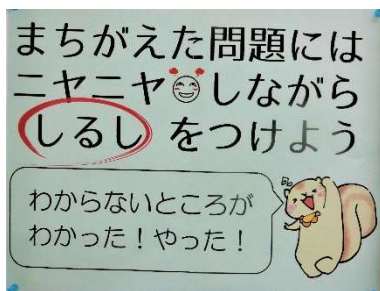 まちがえた問題には
ニヤニヤしながら
しるし をつけよう
わからないところが
わかった！やった！